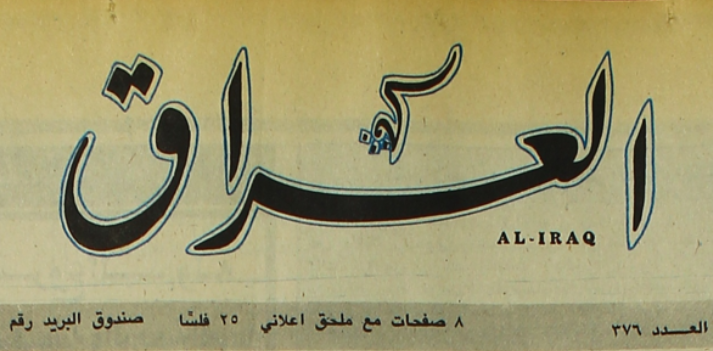 العراق
AL-IRAQ
العـــدد ٣٧٦ ٨ صفحات مع ملحق اعلاني ٢٥ فلسًا صندوق البريد رقم